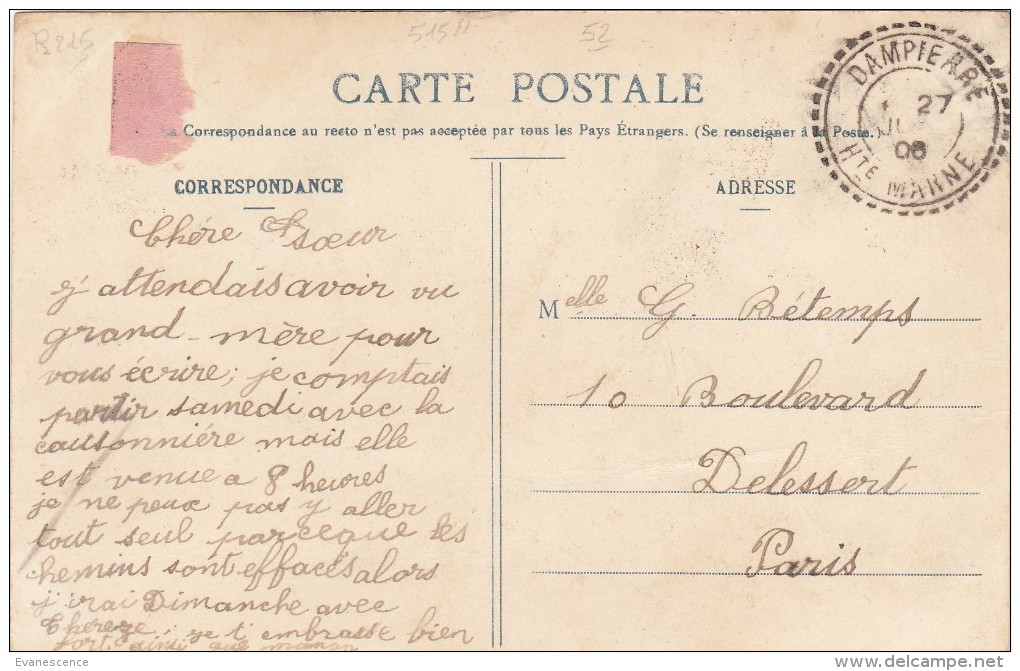 B225
515
52
CARTE POSTALE
La Correspondance au recto n'est pas acceptée par tous les Pays Étrangers. (Se renseigner à la Poste.)
DAMPIERRE
27
06
HTE MARNE
CORRESPONDANCE
ADRESSE
Chére sœur
j'attendais avoir vu
grand-mère pour
vous écrire; je comptais
partir samedi avec la
caussonniére mais elle
est venue a 8 heures
je ne peux pas y aller
tout seul parceque les
chemins sont effacés alors
j'irai Dimanche avec
Thereze je t'embrasse bien
fort ainsi que maman
Melle G. Bétemps
10 Boulevard
Delessert
Paris
Evanescence
delcampe.net